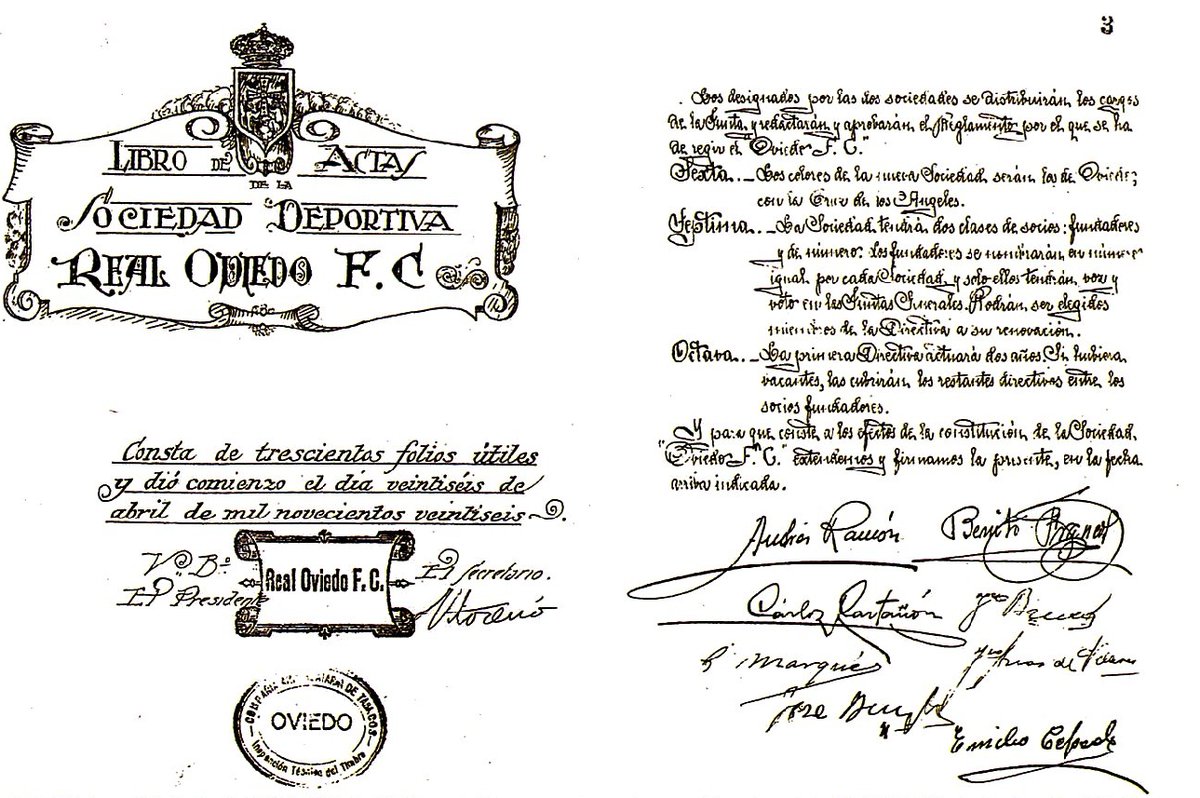 LIBRO DE ACTAS
DE LA
SOCIEDAD DEPORTIVA
REAL OVIEDO F. C
Consta de trescientos folios útiles
y dió comienzo el día veintiséis de
abril de mil novecientos veintiseis
Vº Bº
El Presidente
Real Oviedo F. C.
El secretario.
OVIEDO
DE TABACOS
Inspección Técnica del Timbre
3
Los designados por las dos sociedades se distribuirán los cargos
de la Junta y redactarán y aprobarán el Reglamento por el que se ha
de regir el "Oviedo F. C."
Sexta.- Los colores de la nueva Sociedad serán los de Oviedo,
con la Cruz de los Angeles.
Septima.- La Sociedad tendrá dos clases de socios: fundadores
y de número. Los fundadores se nombrarán en número
igual por cada Sociedad, y solo ellos tendrán voz y
voto en las Juntas Generales. Podrán ser elegidos
miembros de la Directiva a su renovación.
Octava.- La primera Directiva actuará dos años. Si hubiera
vacantes, las cubrirán los restantes directivos entre los
socios fundadores.
Y para que conste a los efectos de la constitución de la Sociedad
"Oviedo F. C." extendemos y firmamos la presente, en la fecha
arriba indicada.
Andrés Ramón Benito
Cárlos
Marqués
José
Emilio